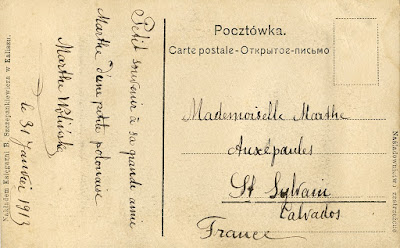 Pocztówka.
Carte postale-Открытое-письмо
Nakładem Księgarni B. Szczepankiewicza w Kaliszu.
Petit souvenir à sa grande amie
Marthe d'une petite polonaise
Marthe
le 31 Janvier 1913
Mademoiselle Marthe
Auxépaules
St Sylvain
Calvados
France
Nakładownictwo zastrzeżone